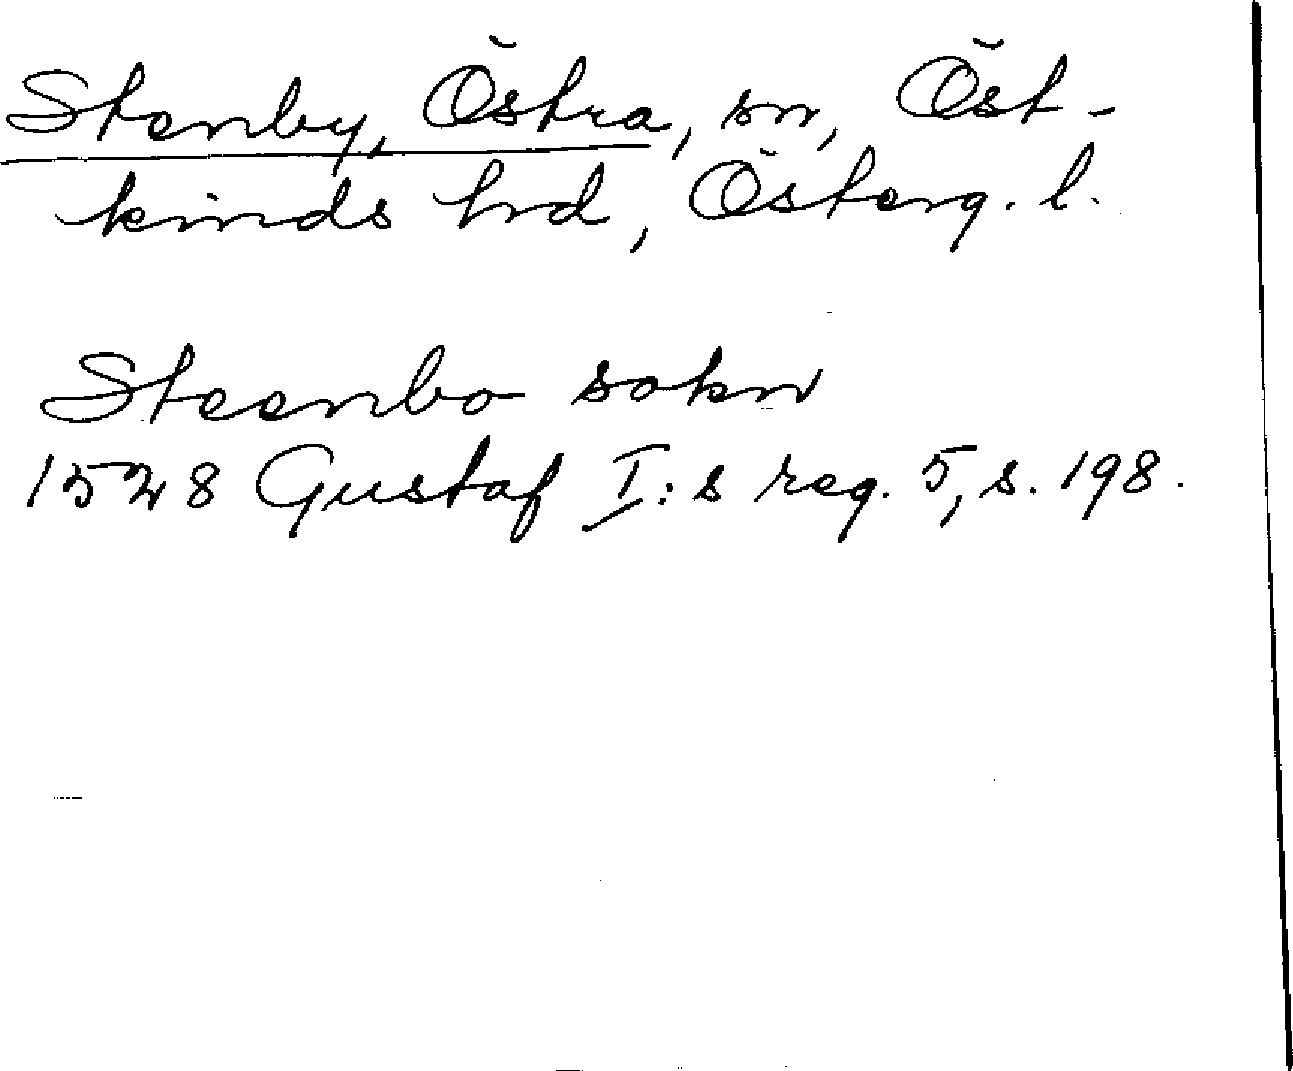 Stenby, Östra, sn, Öst-
kinds hrd, Österg. l.
Steenbo sokn
1528 Gustaf I:s reg. 5, s. 198.